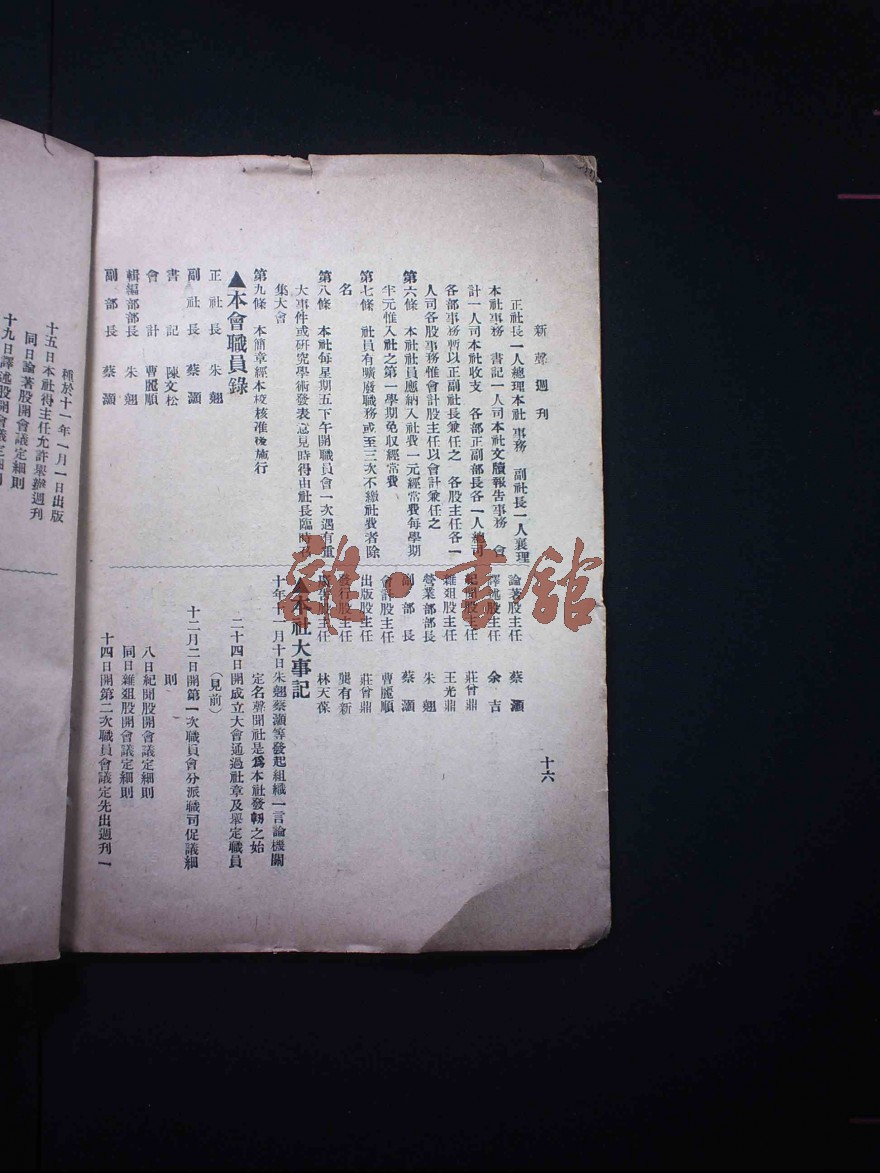 新聲週刊
正社長一人總理本社事務　副社長一人襄理
本社事務　書記一人司本社文牘報告事務　會
計一人司本社收支　各部正副部長各一人總司
各部事務暫以正副社長兼任之　各股主任各一
人司各股事務惟會計股主任以會計兼任之
第六條　本社社員應納入社費一元經常費每學期
半元惟入社之第一學期免收經常費
第七條　社員有曠廢職務或至三次不繳社費者除
名
第八條　本社每星期五下午開職員會一次遇有重
大事件或研究學術發表意見時得由社長臨時召
集大會
第九條　本簡章經本校核准後施行
▲本會職員錄
正社長　朱翹
副社長　蔡灝
書記　陳文松
會計　曹麗順
輯編部部長　朱翹
副部長　蔡灝
論著股主任　蔡灝
譯述股主任　余吉
紀聞股主任　莊曾鼎
雜俎股主任　王光鼎
營業部部長　朱翹
副部長　蔡灝
會計股主任　曹麗順
出版股主任　莊曾鼎
發行股主任　龔有新
廣告股主任　林天葆
▲本社大事記
十年十一月十日朱翹蔡灝等發起組織一言論機關
定名聲聞社是爲本社發軔之始
二十四日開成立大會通過社章及舉定職員
（見前）
十二月二日開第一次職員會分派職司促議細
則
八日紀聞股開會議定細則
同日雜俎股開會議定細則
十四日開第二次職員會議定先出週刊一
十六
種於十一年一月一日出版
十五日本社得主任允許舉辦週刊
同日論著股開會議定細則
十九日譯述股開會議定細則
雜·書館